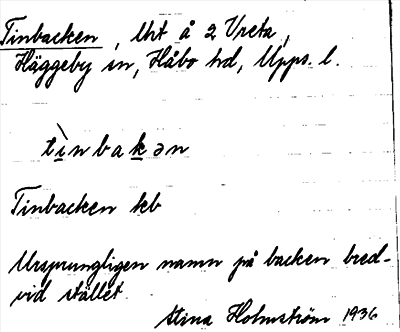 Tinbacken, Lht å 2 Vreta,
Häggeby sn, Håbo hd, Upps. l.
tìnbakən
Tinbacken kb
Ursprungligen namn på backen bred-
vid stället.
Stina Holmström 1936